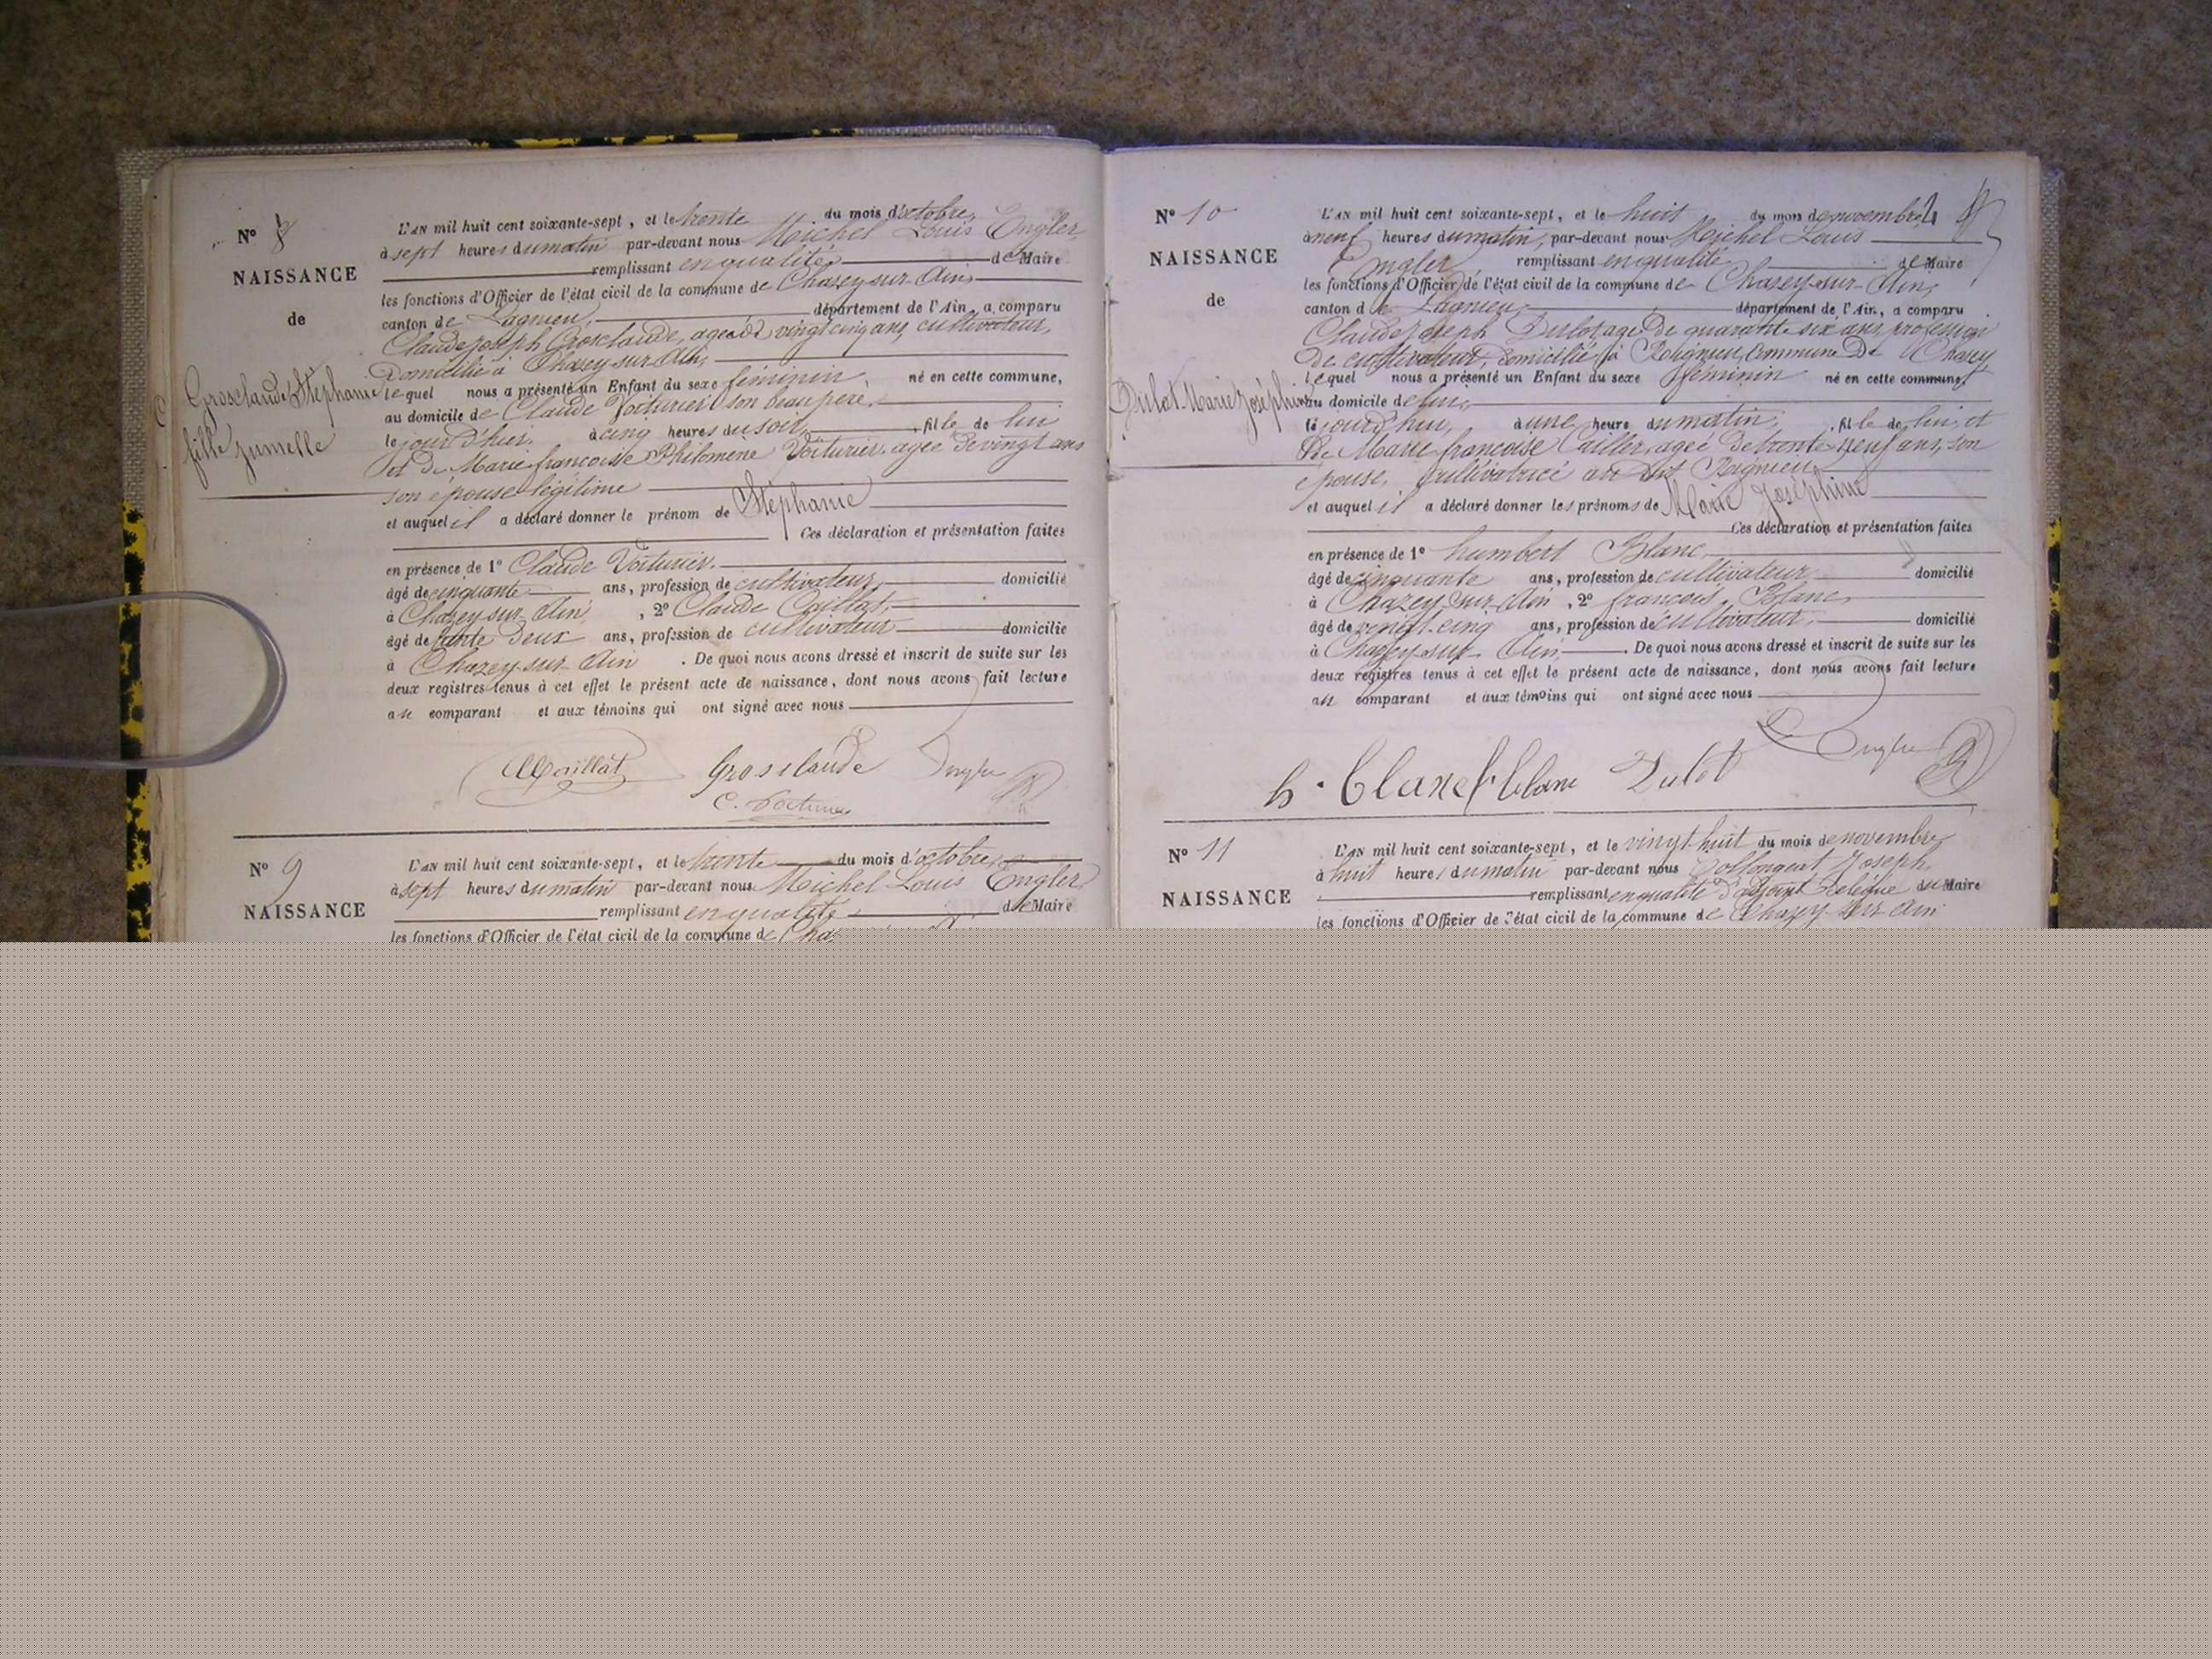 N° 8
NAISSANCE
de
Grosclaude Stéphanie
fille jumelle
L'AN mil huit cent soixante-sept, et le trente du mois d'octobre,
à sept heures du matin par-devant nous Michel Louis Engler
remplissant en qualité de Maire
les fonctions d'Officier de l'état civil de la commune de Chazey sur Ain,
canton de Lagnieu, département de l'Ain, a comparu
Claude Joseph Grosclaude, agé de vingt cinq ans, cultivateur,
Domicilié à Chazey sur Ain,
lequel nous a présenté un Enfant du sexe féminin, né en cette commune,
au domicile de Claude Voiturier son beau père,
le jour d'hier, à cinq heures du soir, fille de lui
et de Marie françoise Philomène Voiturier, agée de vingt ans
son épouse légitime
et auquel il a déclaré donner le prénom de Stéphanie
Ces déclaration et présentation faites
en présence de 1° Claude Voiturier.
âgé de cinquante ans, profession de cultivateur, domicilié
à Chazey sur Ain, 2° Claude Caillat,
âgé de trente deux ans, profession de cultivateur domicilié
à Chazey-sur-Ain. De quoi nous avons dressé et inscrit de suite sur les
deux registres tenus à cet effet le présent acte de naissance, dont nous avons fait lecture
au comparant et aux témoins qui ont signé avec nous
Grosclaude Engler
C. Voiturier
N° 9
NAISSANCE
L'AN mil huit cent soixante-sept, et le trente du mois d'octobre,
à sept heures du matin par-devant nous Michel Louis Engler
remplissant en qualité de Maire
les fonctions d'Officier de l'état civil de la commune de Cha
N° 10
NAISSANCE
de
Dulot Marie Joséphine
L'AN mil huit cent soixante-sept, et le huit du mois de novembre
à neuf heures du matin, par-devant nous Michel Louis
Engler remplissant en qualité de Maire
les fonctions d'Officier de l'état civil de la commune de Chazey-sur-Ain,
canton de Lagnieu, département de l'Ain, a comparu
Claude Joseph Dulot agé de quarante six ans, profession
de cultivateur, domicilié à Rignieu, Commune de Chazey
lequel nous a présenté un Enfant du sexe féminin né en cette commune,
au domicile de lui,
le jourd'hui, à une heure du matin, fille de lui, et
de Marie françoise Cailler, agée de trente neuf ans, son
épouse, cultivatrice au dit Rignieu
et auquel il a déclaré donner les prénoms de Marie Joséphine
Ces déclaration et présentation faites
en présence de 1° humbert Blanc
âgé de cinquante ans, profession de cultivateur domicilié
à Chazey sur Ain, 2° françois Blanc,
âgé de vingt-cinq ans, profession de cultivateur, domicilié
à Chazey sur Ain. De quoi nous avons dressé et inscrit de suite sur les
deux registres tenus à cet effet le présent acte de naissance, dont nous avons fait lecture
au comparant et aux témoins qui ont signé avec nous
h. Blanc f. blanc Dulot Engler
N° 11
NAISSANCE
L'AN mil huit cent soixante-sept, et le vingt-huit du mois de novembre
à huit heures du matin par-devant nous Joseph
remplissant en qualité d'adjoint délégué du Maire
les fonctions d'Officier de l'état civil de la commune de Chazey sur Ain